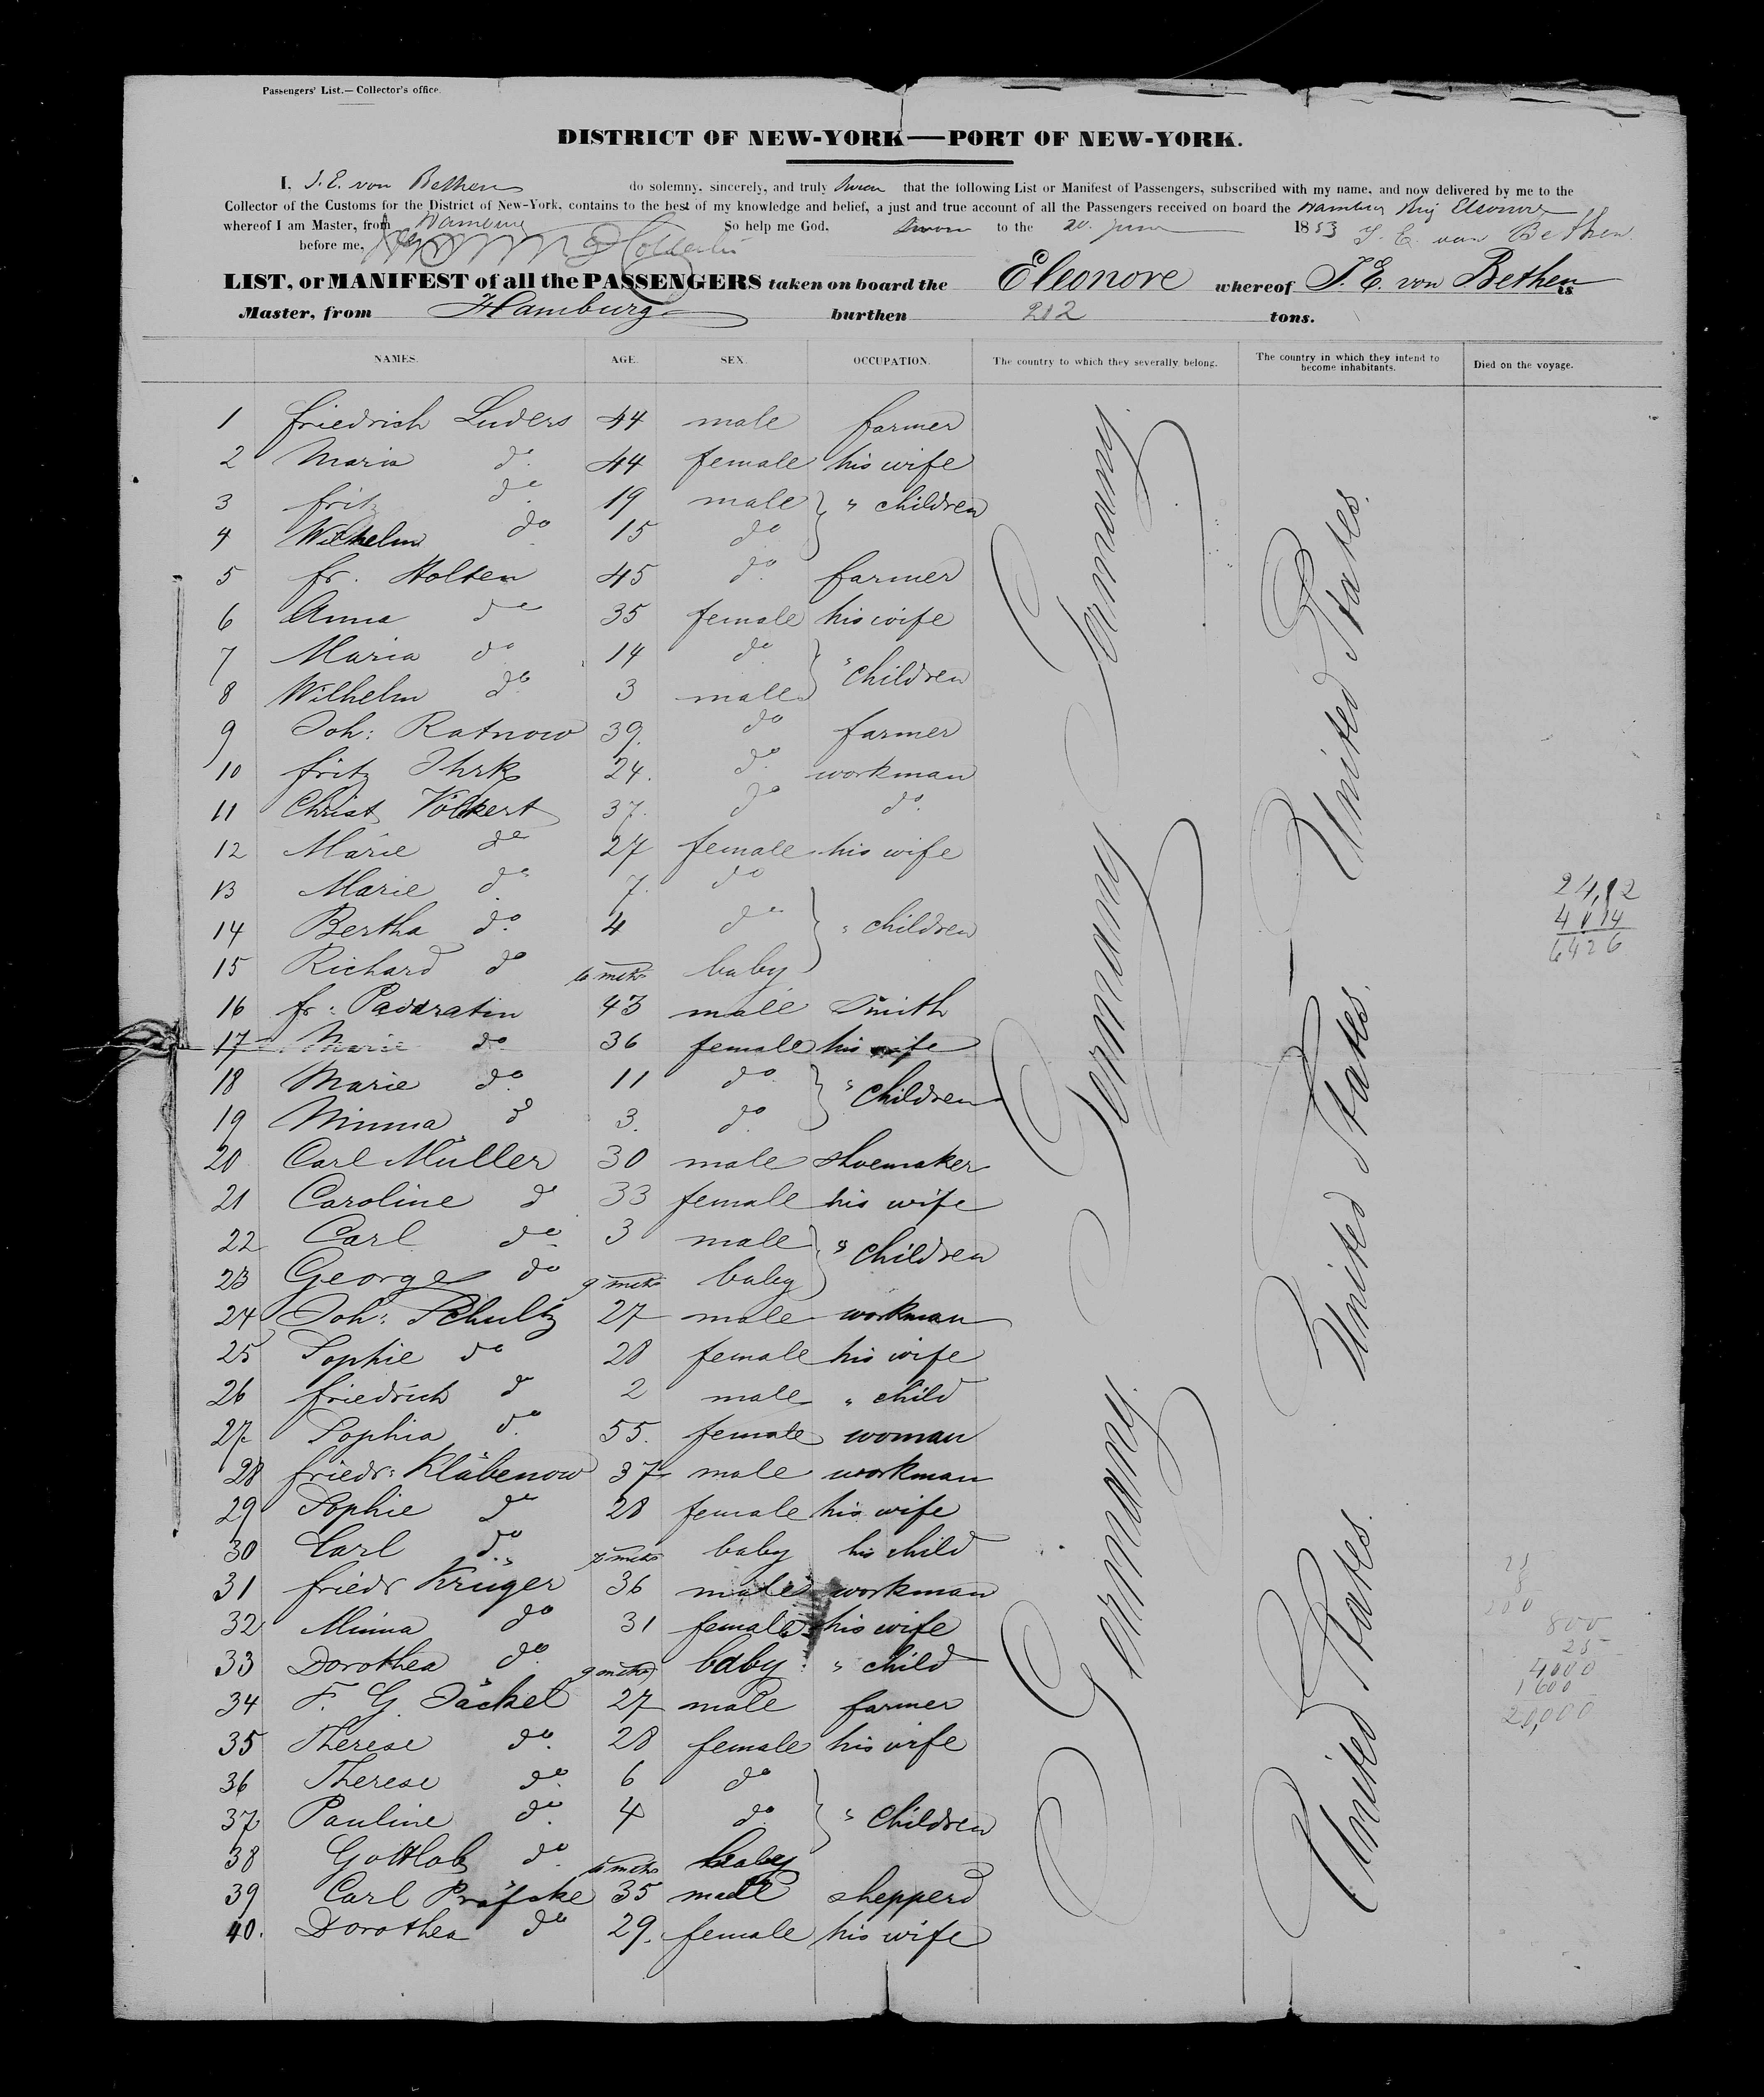 Passengers' List.—Collector's office.
DISTRICT OF NEW-YORK—PORT OF NEW-YORK.
I, J. E. von Bethen do solemny, sincerely, and truly swear that the following List or Manifest of Passengers, subscribed with my name, and now delivered by me to the
Collector of the Customs for the District of New-York, contains to the best of my knowledge and belief, a just and true account of all the Passengers received on board the Hamburg Brig Eleonore
whereof I am Master, from Hamburg So help me God. Sworn to the 20. June 1853 J. E. von Bethen.
before me,
LIST, or MANIFEST of all the PASSENGERS taken on board the Eleonore whereof J. E. von Bethen is
Master, from Hamburg burthen 212 tons.
NAMES. AGE. SEX. OCCUPATION. The country to which they severally belong. The country in which they intend to become inhabitants. Died on the voyage.
1 friedrich Luders 44 male farmer
2 Maria do. 44 female his wife
3 fritz do 19 male " children
4 Wilhelm do 15 do
5 fr. Holten 45 do. farmer
6 Anna do 35 female his wife
7 Maria do 14 do " children
8 Wilhelm do. 3 male
9 Joh: Ratnow 39. do farmer
10 fritz Ihrk 24. do. workman
11 Christ Völkert 37. do do.
12 Marie do 27 female his wife
13 Marie do. 7. do
14 Bertha do. 4 do " children
15 Richard do 6 mths baby
16 fr: Paddratin 43 male Smith
17 Marie do 36 female his wife
18 Marie do. 11 do. " Children
19 Minna d 3. do.
20 Carl Müller 30 male shoemaker
21 Caroline d 33 female his wife
22 Carl do 3 male " children
23 George do 9 mths baby
24 Joh: Schultz 27 male workman
25 Sophie do 28 female his wife
26 friedrich d 2 male " child
27 Sophia do. 55. female woman
28 friedr: Kläbenow 37 male workman
29 Sophie do 28 female his wife
30 Carl do. mths baby his child
31 friedr Krüger 36 male workman
32 Minna do 31 female his wife
33 Dorothea do. 9 mths baby " child
34 F. G. Jäckel 27 male farmer
35 Therese do. 28 female his wife
36 Therese do. 6 do
37 Pauline do. 4 do. " Children
38 Gottlob do. 6 mths baby
39 Carl Präfcke 35 male shepperd
40. Dorothea do 29. female his wife
Germany Germany Germany.
United States. United States. United States.
24,12
4 14
6426
25
8
200
800
25
4,000
1600
20,000